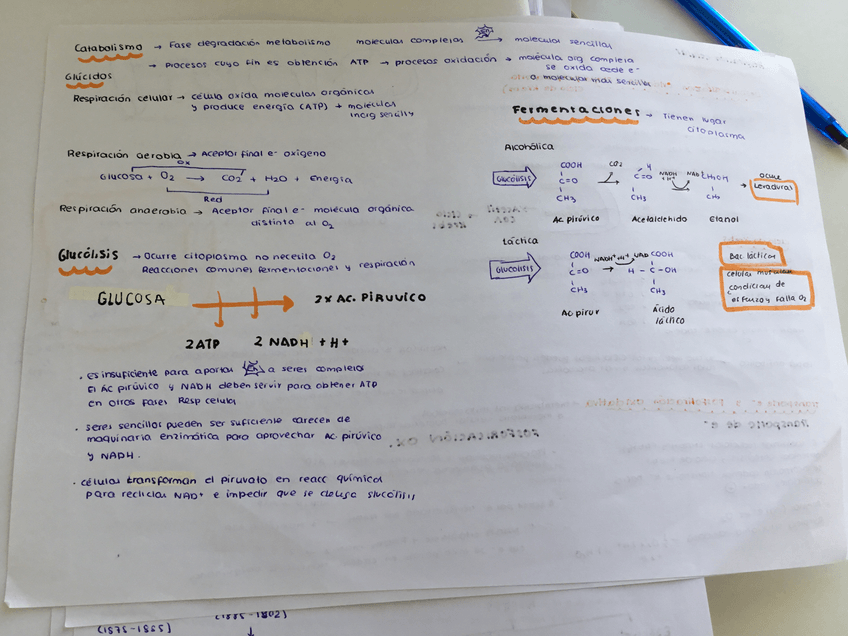 Catabolismo → Fase degradación metabolismo moleculas complejas → moleculas sencillas
→ Procesos cuyo fin es obtención ATP → procesos oxidación → molécula org compleja
se oxida cede e-
a moleculas mas sencilla
Glúcidos
Respiración celular → célula oxida moleculas orgánicas
y produce energía (ATP) + moléculas
inorg sencilly
Respiración aerobia → Aceptor final e- oxígeno
Ox
Glucosa + O2 → CO2 + H2O + Energía
Red
Respiración anaerobia → Aceptor final e- molécula orgánica
distinto al O2
Glucólisis → Ocurre citoplasma no necesita O2
Reacciones comunes fermentaciones y respiración
GLUCOSA → 2x AC. PIRUVICO
2 ATP 2 NADH + H+
. es insuficiente para aportar a seres complejos
El Ác pirúvico y NADH deben servir para obtener ATP
en otras fases Resp celular
. Seres sencillos pueden ser suficiente carecen de
maquinaria enzimática para aprovechar Ac pirúvico
y NADH.
. células transforman el piruvato en reacc químicas
para reciclar NAD+ e impedir que se
Fermentaciones → Tienen lugar
citoplasma
Alcohólica
GLUCÓLISIS
COOH
C=O
CH3
Ac pirúvico
CO2
H
C=O
CH3
Acetaldehido
NADH
+H+
NAD
CH2OH
CH3
Etanol
→ ocurre
Levaduras
Láctica
GLUCOLISIS
COOH
C=O
CH3
Ac piruv
NADH+H+ NAD
COOH
H - C - OH
CH3
Ácido
láctico
Bac lácticas
células musculares
condicion de
esfuerzo y falla O2
(1575-1585)